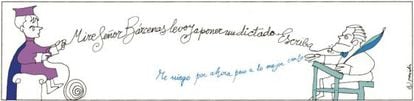 Mire Señor Bárcenas le voy a poner un dictado. Escriba
Me niego por ahora, pero a lo mejor canto